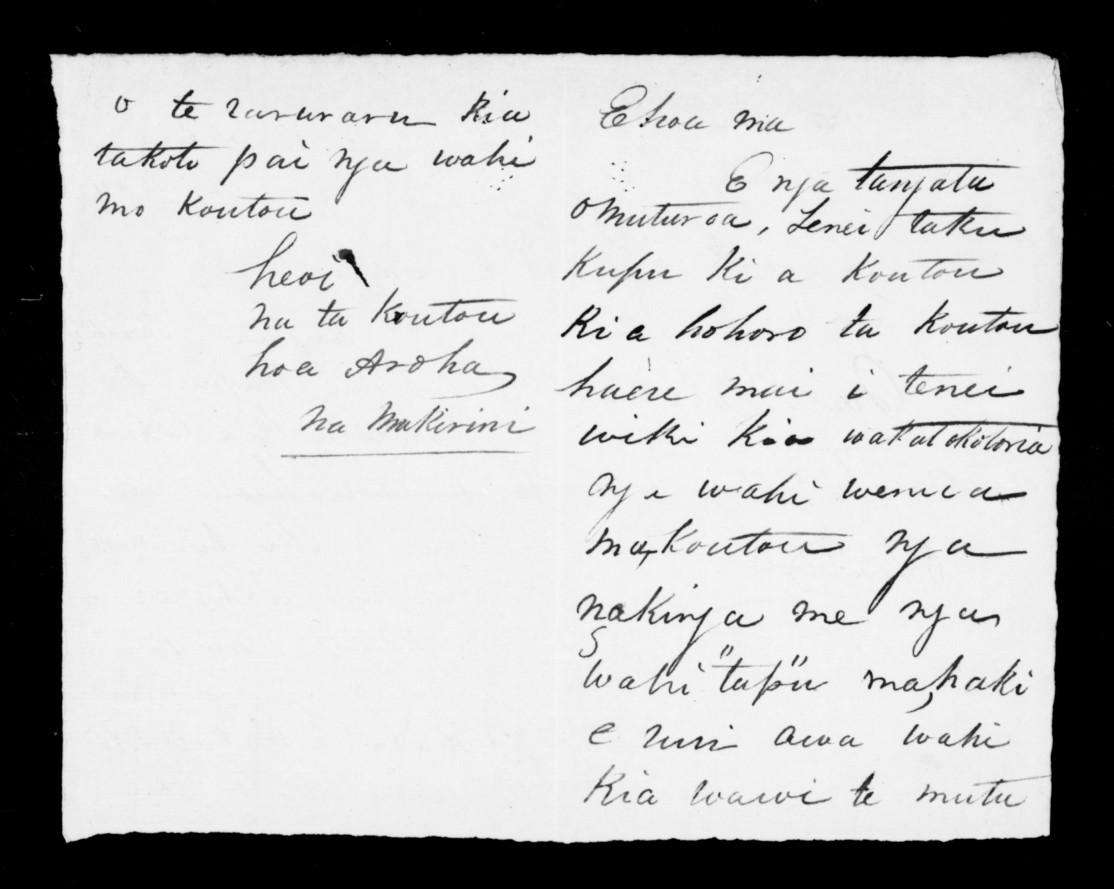 E hoa ma
E nga tangata
o muturoa, Tenei taku
Kupu Ki a Koutou
Kia hohoro ta Koutou
haere mai i tenei
wiki Kia wakatakotoria
nga wahi wenua
ma Koutou nga
nakinga me nga
wahi "tapu" mahaki
e runi awa wahi
Kia wawi te mutu
o te raruraru Kia
takoto pai nga wahi
mo Koutou
heoi
na ta Koutou
hoa Aroha
na Makirini